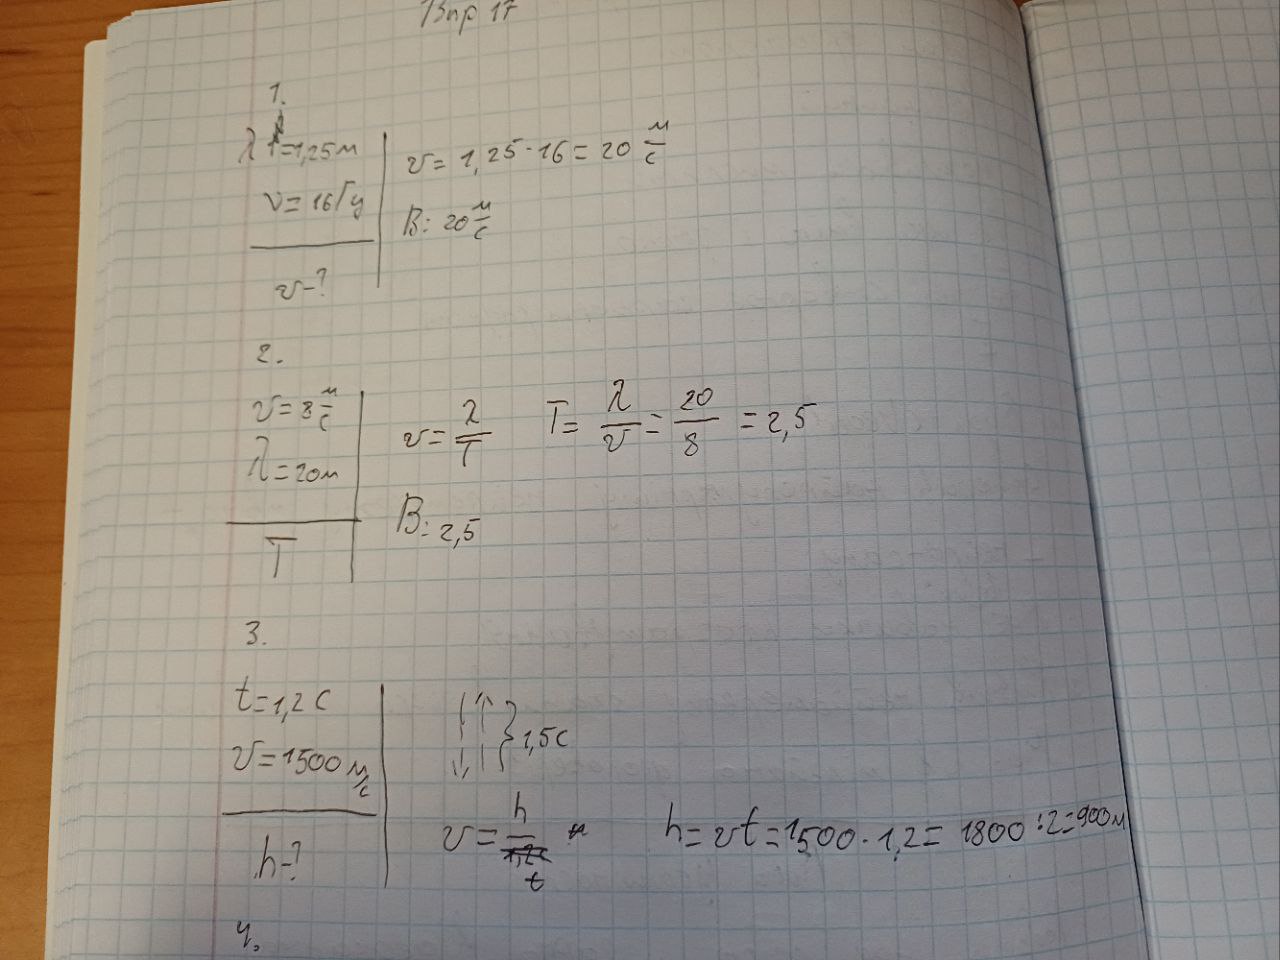 Впр 17
1.
λ = 1,25 м
ν = 16 Гц
v - ?
v = 1,25 · 16 = 20 м/с
В: 20 м/с
2.
v = 8 м/с
λ = 20 м
T
v = λ/T T = λ/v = 20/8 = 2,5
В: 2,5
3.
t = 1,2 с
v = 1500 м/с
h - ?
1,5 с
v = h/t h = vt = 1500 · 1,2 = 1800 : 2 = 900 м
4.